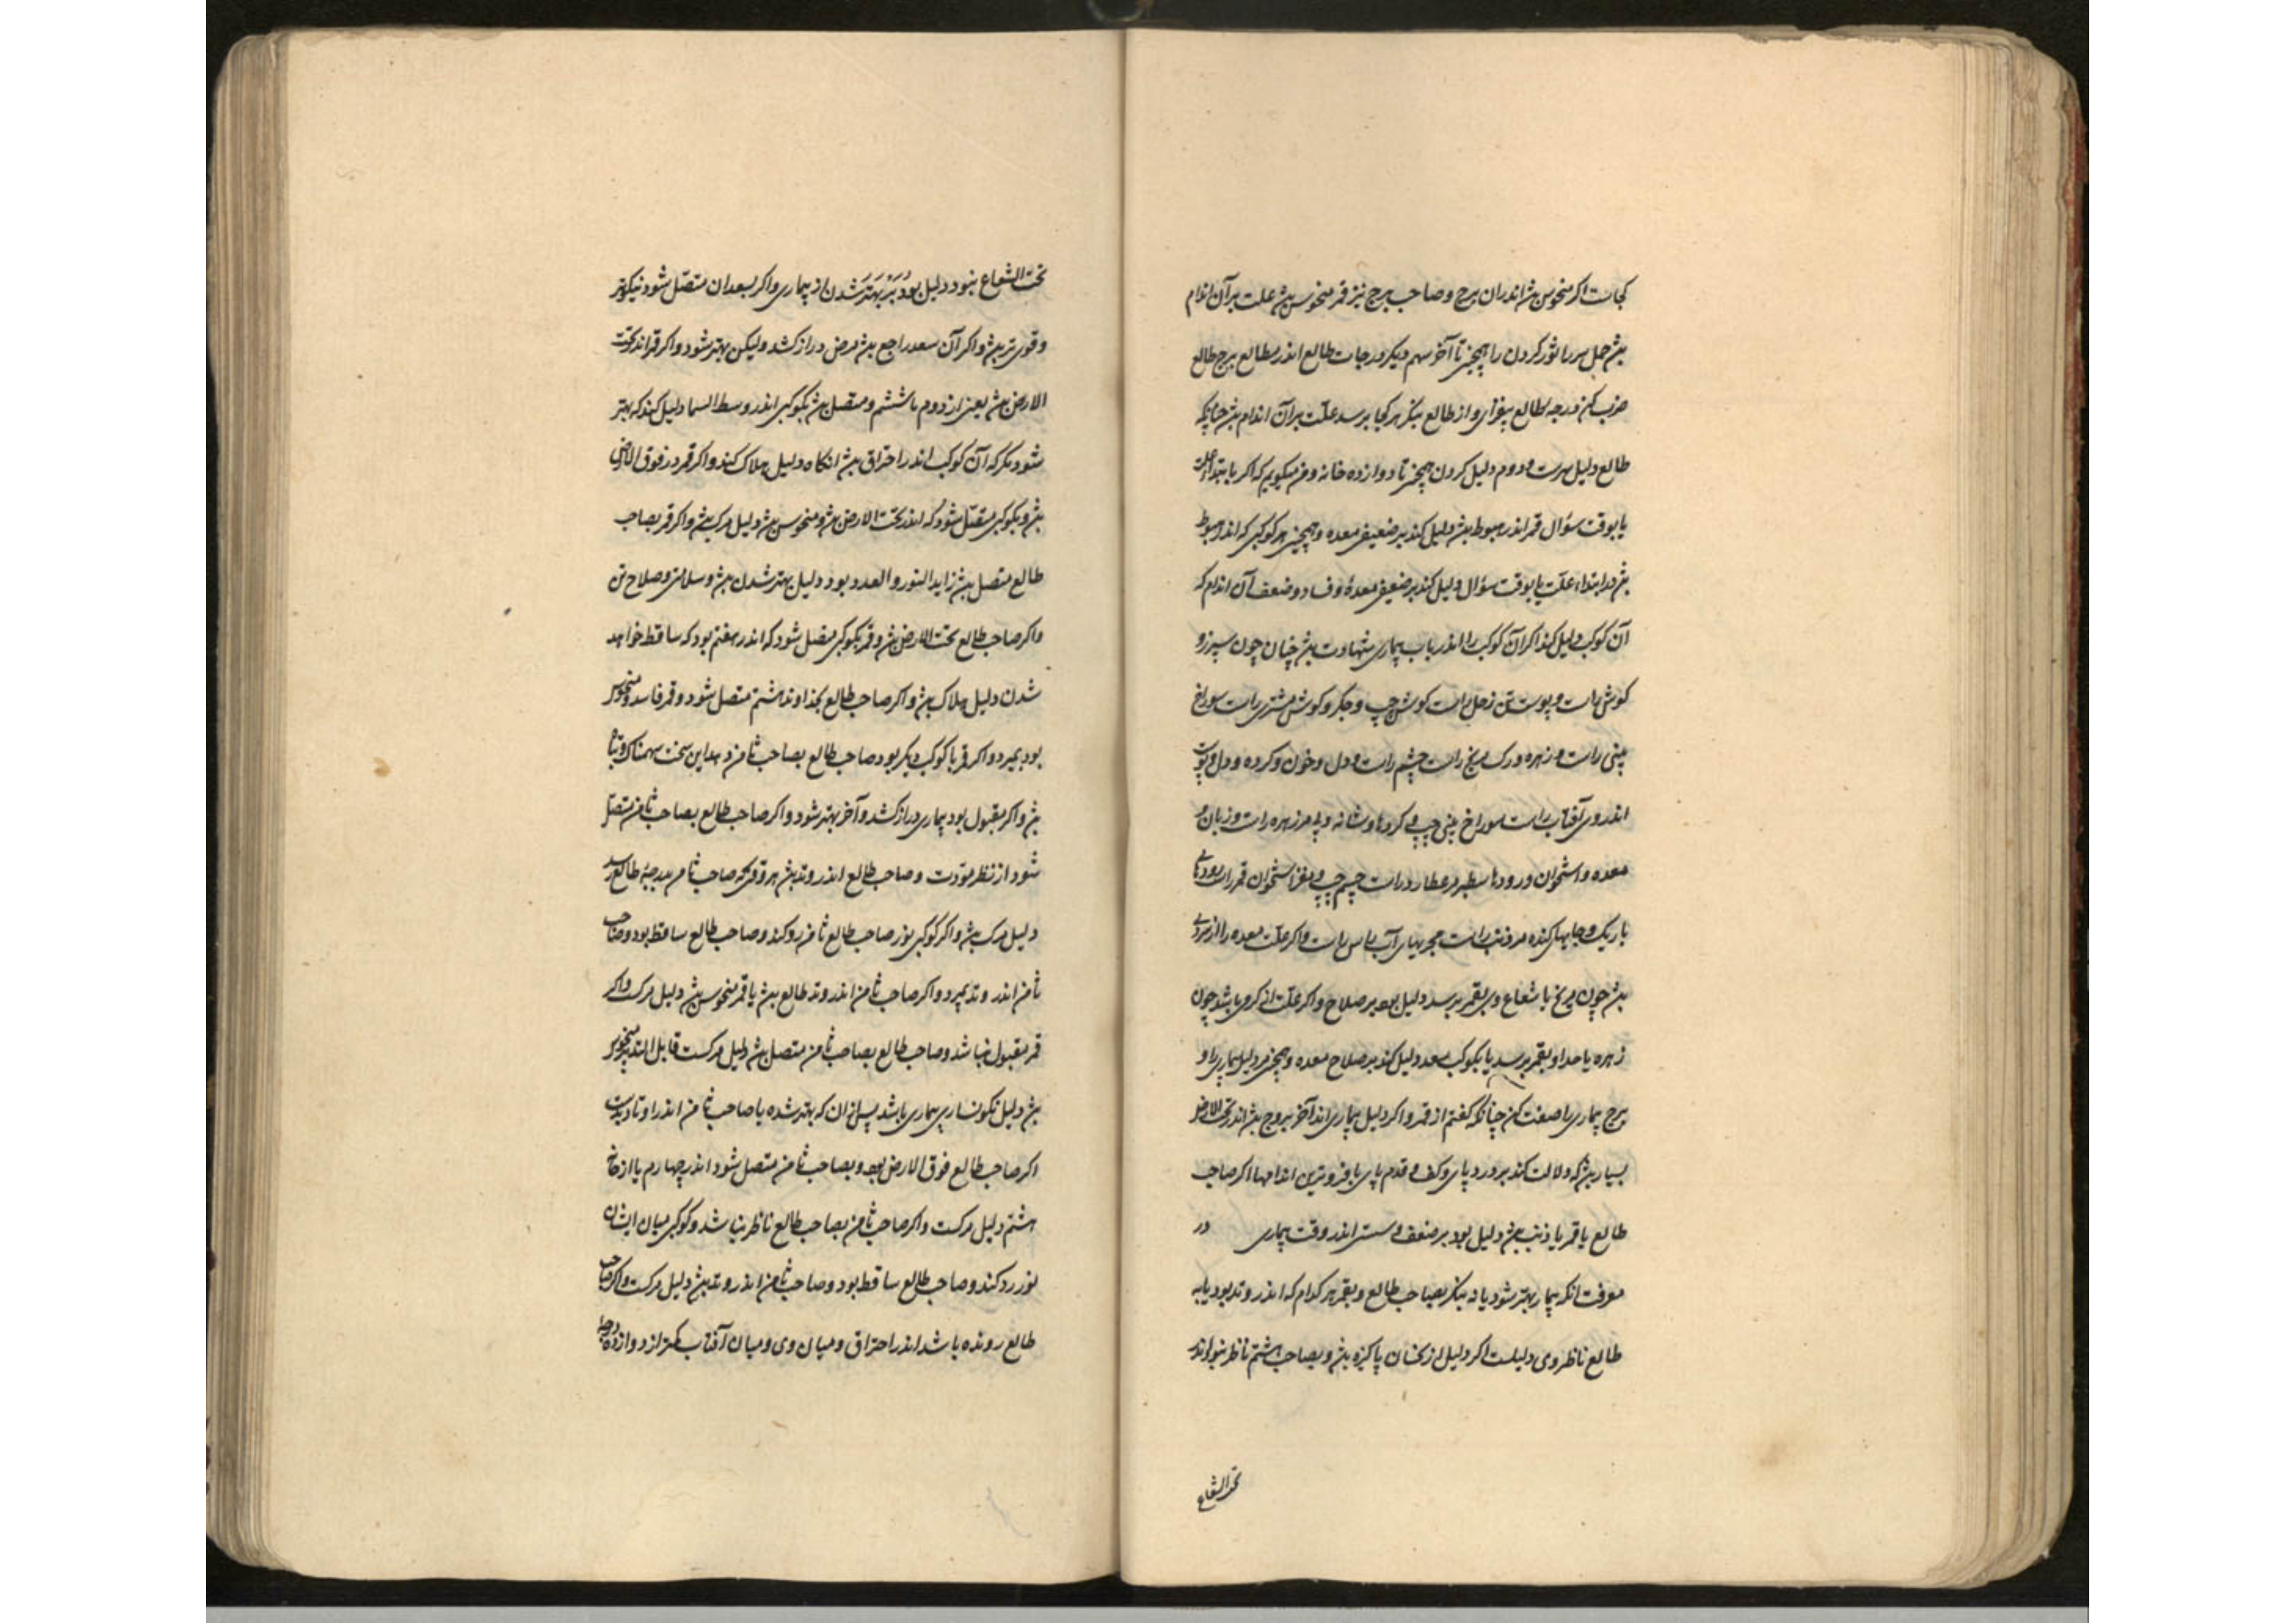 کجاست اکر منحوس بش اندران برج وصاحب برج نیز قمر منحوس بش علت بر آن اندام
بش حمل سر را ثور کردن را همچنین تا آخر سهم دیکر درجات طالع اندر مطالع برج طالع
ضرب کن درجه طالع بیفزای واز طالع بنکر هر کجا برسد علت بر آن اندام بش چنانکه
طالع دلیل سرست ودوم دلیل کردن همچنین تا دوازده خانه ومن میکویم که اکر بابتداء علت
یا بوقت سؤال قمر اندر هبوط بش دلیل کند بر ضعیفی معده وهمچنین هر کوکبی که اندر هبوط
بش در ابتداء علت یا بوقت سؤال دلیل کند بر ضعیفی معده وفساد وضعف آن اندام که
آن کوکب دلیل کند اکر آن کوکب را اندر باب بیماری شهادت بش چنان چون سپرز و
کوش راست وپوست تن زحل راست کوش چپ وجکر وکوش مشتری راست سوراخ
بینی راست وزهره ورک مریخ راست چشم راست ودل وخون وکرده ودل وپوست
اندر وی آفتاب راست سوراخ بینی چپ وکردها وشانه وپی مر زهره راست وزبان و
معده واستخوان ورودها سطبر مر عطارد راست چشم چپ ومغز استخوان قمر راست رودهای
باریک وجایهای کنده مر ذنب راست مجریهای آب راس راست واکر علت معده را از سردی
بش چون مریخ با شعاع وی بقمر برسد دلیل بود بر صلاح واکر علت از کرمی باشد چون
زهره یا حد او بقمر برسد یا بکوکب سعد دلیل کند بر صلاح معده وهمچنین مر دلیل بیماری را و
برج بیماری را صفت کن چنانکه کفتم از قمر واکر دلیل بیماری اندر آخر بروج بش اندر تحت الارض
بسیار بش که دلالت کند بر درد پای وکف وقدم پای یا فروترین اندامها اکر صاحب
طالع یا قمر با ذنب بش دلیل بود بر ضعف وسستی اندر وقت بیماری در
معرفت آنکه بیمار بهتر شود یا نه بنکر بصاحب طالع وبقمر هر کدام که اندر وتد بود یا به
طالع ناظر وی دلیلست اکر دلیل از نحسان پاکیزه بش وبصاحب هشتم ناظر نبود واندر
تحت الشعاع
تحت الشعاع نبود دلیل بود بر بهتر شدن از بیماری واکر بسعدان متصل شود نیکوتر
وقوی تر بش واکر آن سعد راجع بش مرض دراز کشد ولیکن بهتر شود واکر قمر اندر تحت
الارض بش یعنی از دوم تا ششم ومتصل بش بکوکبی اندر وسط السما دلیل کند که بهتر
شود مکر که آن کوکب اندر احتراق بش انکاه دلیل هلاک کند واکر قمر در فوق الارض
بش وبکوکبی متصل شود که اندر تحت الارض بش ومنحوس بش دلیل مرک بش واکر قمر بصاحب
طالع متصل بش زاید النور والعدد بود دلیل بهتر شدن بش وسلامتی وصلاح تن
واکر صاحب طالع تحت الارض بش وقمر بکوکبی متصل شود که اندر هفتم بود که ساقط خواهد
شدن دلیل هلاک بش واکر صاحب طالع بخداوند هشتم متصل شود وقمر فاسد ومنحوس
بود بمیرد واکر قمر با کوکب دیکر بود صاحب طالع بصاحب ثامن دهد این سخت سهمناک وتباه
بش واکر مقبول بود بیماری دراز کشد وآخر بهتر شود واکر صاحب طالع بصاحب ثامن متصل
شود از نظر مودت وصاحب طالع اندر وتد بش هر وقتی که صاحب ثامن بدرجهٔ طالع رسد
دلیل مرک بش واکر کوکبی نور صاحب طالع ثامن رد کند وصاحب طالع ساقط بود وصاحب
ثامن اندر وتد بمیرد واکر صاحب ثامن اندر وتد طالع بش یا قمر منحوس بش دلیل مرکست واکر
قمر مقبول نباشد وصاحب طالع بصاحب ثامن متصل بش دلیل مرکست قابل التدبیر منحوس
بش دلیل نکونساری بیماری باشد پس از آن که بهتر شده یا صاحب ثامن اندر اوتاد بدست
اکر صاحب طالع فوق الارض بود وبصاحب ثامن متصل شود اندر چهارم یا از خانه
هشتم دلیل مرکست واکر صاحب ثامن بصاحب طالع ناظر نباشد وکوکبی میان ایشان
نور رد کند وصاحب طالع ساقط بود وصاحب ثامن اندر وتد بش دلیل مرکست واکر صاحب
طالع رونده باشد اندر احتراق ومیان وی ومیان آفتاب کمتر از دوازده درجه